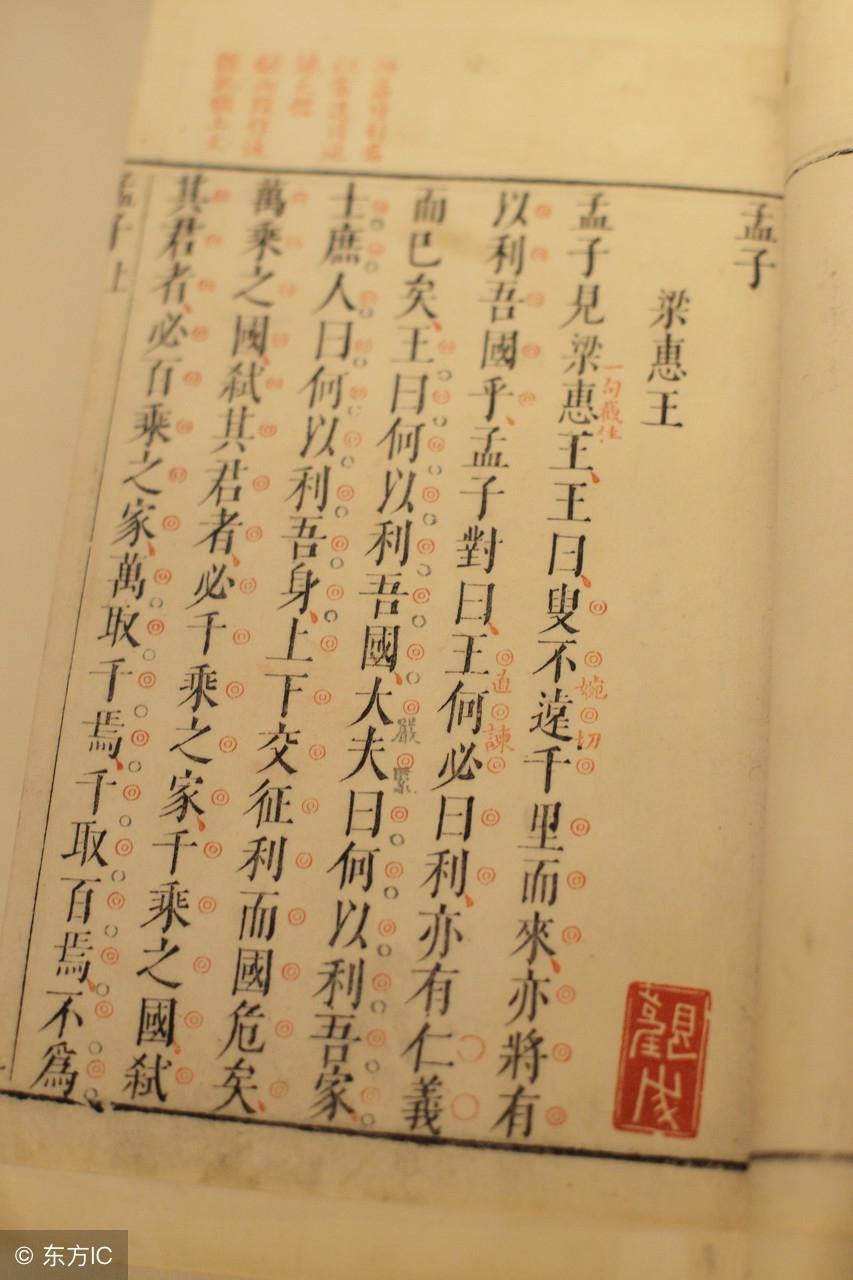 孟子
梁惠王
孟子見梁惠王、王曰、叟不遠千里而來、亦將有
一句截住
婉切
以利吾國乎、孟子對曰、王何必曰利、亦有仁義
直諫
而已矣、王曰何以利吾國、大夫曰何以利吾家、
嚴緊
士庶人曰何以利吾身、上下交征利而國危矣、
萬乘之國、弑其君者、必千乘之家、千乘之國、弑
其君者、必百乘之家、萬取千焉、千取百焉、不爲
孟子上
© 东方IC